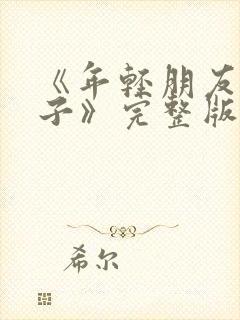 《年轻朋友
子》完整版
希尔